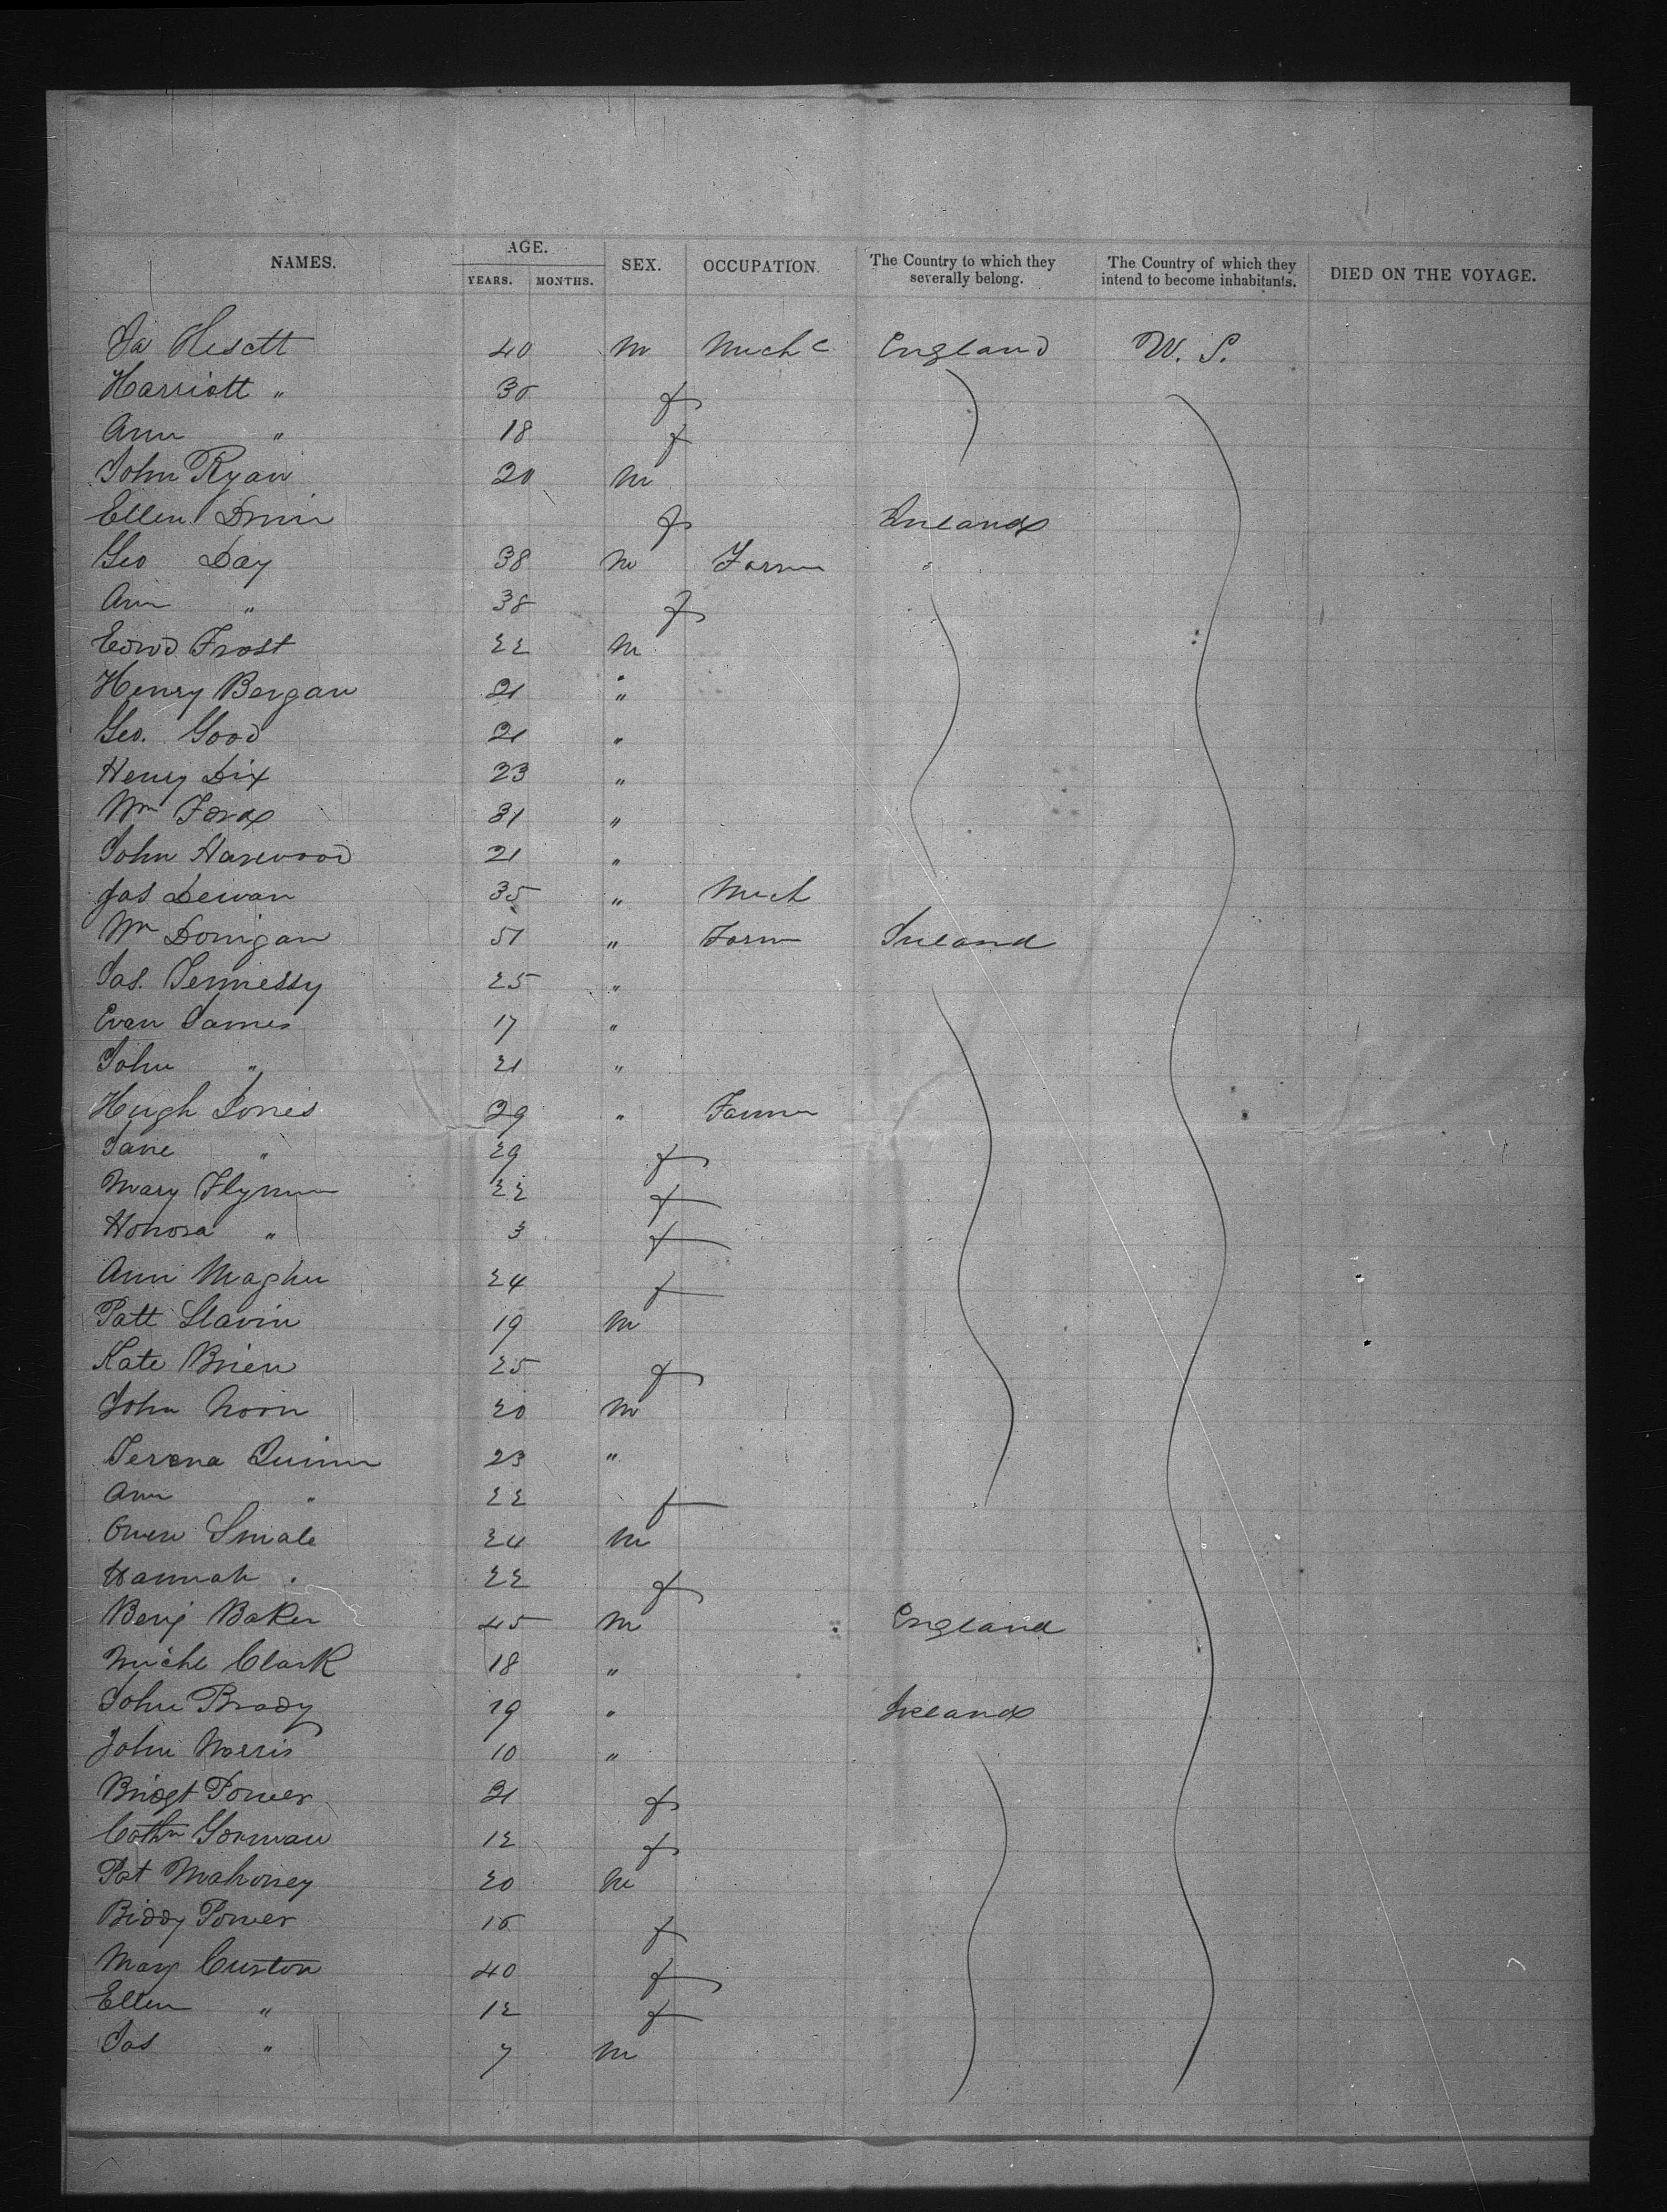 NAMES. AGE. SEX. OCCUPATION. The Country to which they severally belong. The Country of which they intend to become inhabitants. DIED ON THE VOYAGE.
YEARS. MONTHS.
Ja Hesett 40 m Mech c England U. S.
Harriott " 36 f
Ann " 18 f
John Ryan 20 m
Ellen f Ireland
Geo Day 38 m Farm "
Ann " 38 f
Edwd Frost 22 m
Henry Bergan 21 "
Geo. Good 21 "
Henry Dix 23 "
Wm Ford 31 "
John Harwood 21 "
Jas Dewan 35 " Mech
Wm Donigan 51 " Farm Ireland
Jas. Tennessy 25 "
Evan James 17 "
John " 21 "
Hugh Jones 29 " Farmer
Jane " 29 f
Mary Flynn 22 f
Honora " 3 f
Ann Magher 24 f
Patt Slavin 19 m
Kate Brien 25 f
John Noon 20 m
Terena Quinn 23 "
Ann " 22 f
Owen Smale 24 m
Hannah " 22 f
Benj Baker 45 m England
Michl Clark 18 "
John Brady 19 " Ireland
John Norris 10 "
Bridgt Power 21 f
Cathn Gorman 12 f
Pat Mahoney 20 m
Biddy Power 16 f
Mary Curston 40 f
Ellen " 12 f
Jas " 7 m